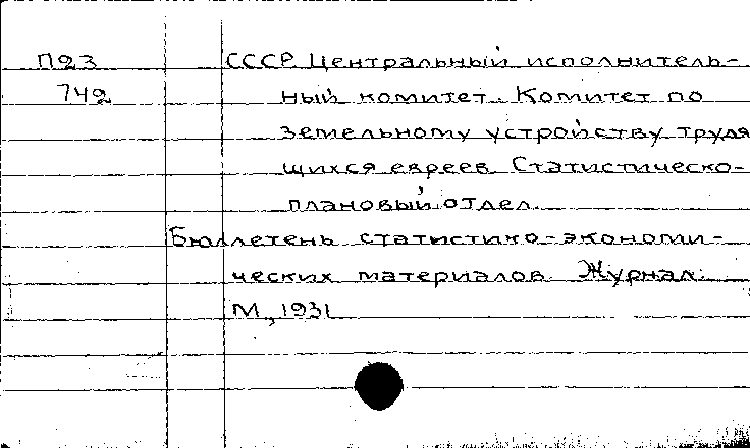 П23 СССР. Центральный исполнитель-
742 ный комитет. Комитет по
земельному устройству трудя
щихся евреев. Статистическо-
плановый отдел.
Бюллетень статистико-экономи-
ческих материалов. Журнал.
М., 1931